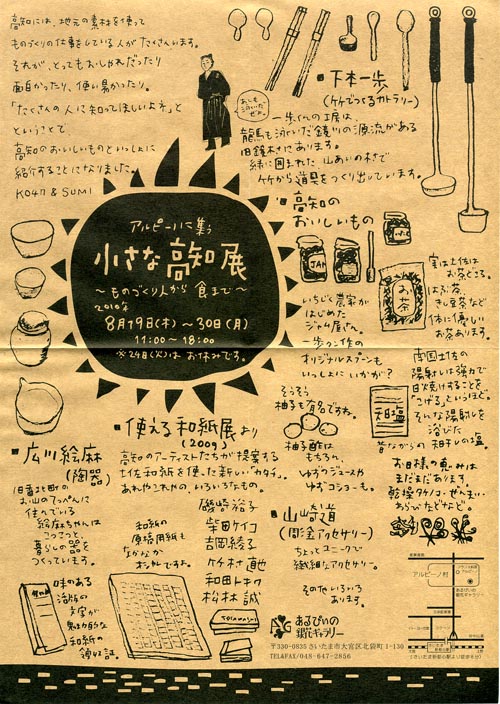 高知には、地元の素材を使って
ものづくりの仕事をしている人がたくさんいます。
それが、とってもおしゃれだったり
面白かったり、使い易かったり。
「たくさんの人に知ってほしいよネ」と
ということで
高知のおいしいものといっしょに
紹介することになりました。
KO47 & SUMI
アルピーノに集う
小さな高知展
〜ものづくり人から食まで〜
2010年
8月19日(木)〜30日(月)
11:00〜18:00
※24日(火)はお休みです。
下本一歩
(竹でつくるカトラリー)
一歩くんの工房は、
龍馬も泳いだ鏡川の源流がある
旧鏡村にあります。
緑に囲まれた山あいの村で
竹から道具をつくり出しています。
高知の
おいしいもの
JAM
いちじく農家が
はじめた
ジャム屋さん。
一歩クン作の
オリジナルスプーンも
いっしょにいかが?
実は土佐は
お茶どころ。
はぶ茶、
きし豆茶など
体に優しい
お茶あります。
お茶
南国土佐の
陽射しは強力で
日焼けすることを
「こげる」というほど。
そんな陽射しを
浴びた
昔ながらの天日干しの塩。
そうそう
柚子も有名ですね。
柚子酢は
もちろん、
ゆずジュースや
ゆずコショーも。
お日様の恵みは
まだまだあります。
乾燥タケノコ・ぜんまい
わらびなどなど。
使える和紙展より
(2009)
高知のアーティストたちが提案する
土佐和紙を使った新しい「カタチ」。
あれやこれやの、いろいろなもの。
磯崎裕子
柴田ケイコ
吉岡綾子
竹村直也
和田トキワ
松林誠
和紙の
原稿用紙も
なかなか
オシャレですね。
広川絵麻
(陶器)
旧香北町の
お山のてっぺんに
住んでいる
絵麻ちゃんは
コツコツと
暮らしの器を
つくっています。
味のある
活版の
文字が
魅力的な
和紙の
領収証。
山崎道
(彫金アクセサリー)
ちょっとユニークで
繊細なアクセサリー。
その他いろいろ
あります。
あるぴいの
銀花ギャラリー
〒330-0835 さいたま市大宮区北袋町1-130
TEL&FAX/048-647-2856
アルピーノ村
あるぴいの
銀花ギャラリー